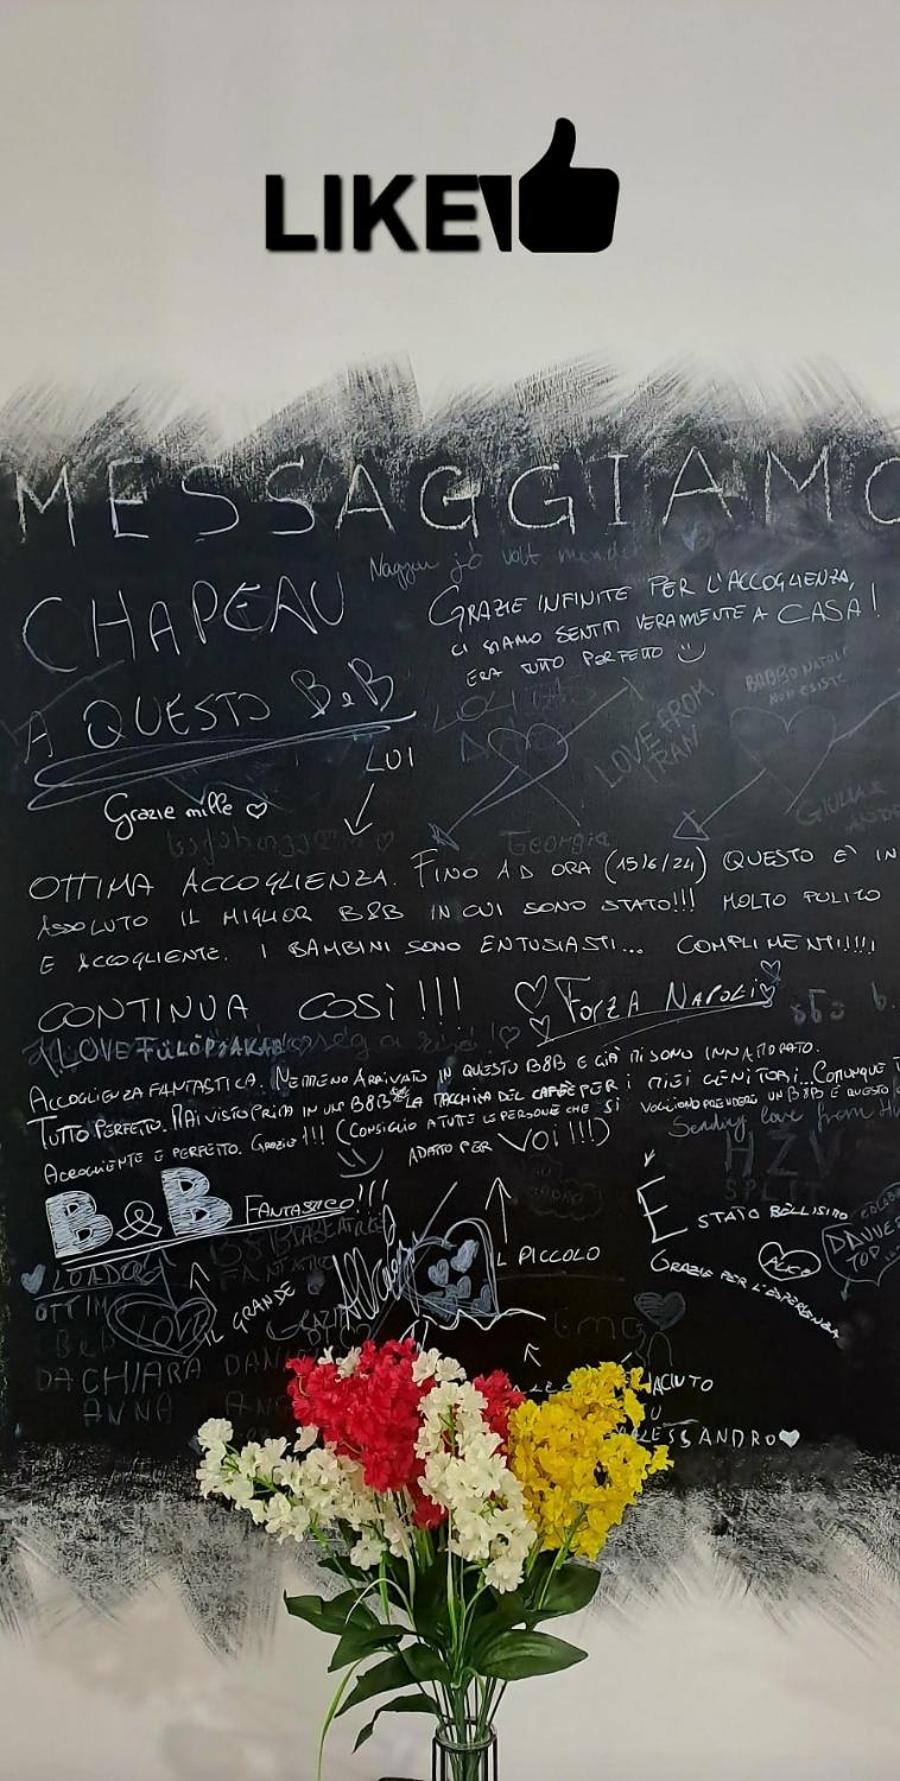 LIKE
MESSAGGIAMO
CHAPEAU
A QUESTO B&B
GRAZIE INFINITE PER L'ACCOGLIENZA,
CI SIAMO SENTITI VERAMENTE A CASA!
ERA TUTTO PERFETTO
BABBO NATALE
NON ESISTE
LOVE FROM
IRAN
LUI
Grazie mille
Georgia
GIULIA E
OTTIMA ACCOGLIENZA. FINO AD ORA (15/6/24) QUESTO E' IN
ASSOLUTO IL MIGLIOR B&B IN CUI SONO STATO!!! MOLTO PULITO
E ACCOGLIENTE. I BAMBINI SONO ENTUSIASTI... COMPLIMENTI!!!!
CONTINUA COSÌ!!!
FORZA NAPOLI
I LOVE FÜLÖPJAKAB
ACCOGLIENZA FANTASTICA. NEMMENO ARRIVATO IN QUESTO B&B E GIÀ MI SONO INNAMORATO.
TUTTO PERFETTO. MAI VISTO PRIMA IN UN B&B LA MACCHINA DEL CAFFÈ PER I MIEI GENITORI... COMUNQUE
ACCOGLIENTE E PERFETTO. GRAZIE!!! (CONSIGLIO A TUTTE LE PERSONE CHE SI VOGLIONO PRENDERE UN B&B E QUESTO
ADATTO PER VOI!!!)
Sending love from
HZV
SPLIT
B&B FANTASTICO!!!
E STATO BELLISIMO
GRAZIE PER L'ESPERIENZA
ALICE
TOP
IL PICCOLO
IL GRANDE
LOVE
DA CHIARA
ANNA
ALESSANDRO